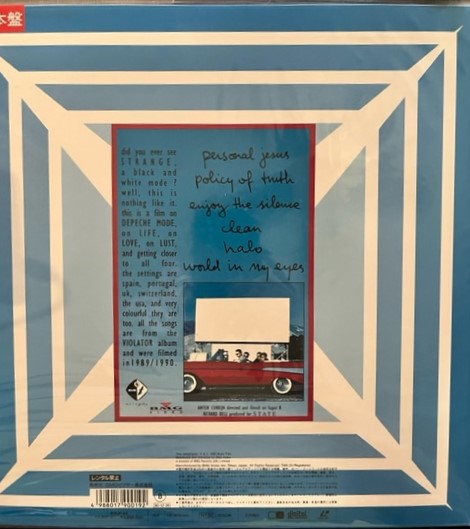 本盤
did you ever see
STRANGE,
a black and
white mode ?
well, this is
nothing like it.
this is a film on
DEPECHE MODE,
on LIFE, on
LOVE, on LUST,
and getting closer
to all four.
the settings are
spain, portugal,
uk, switzerland,
the usa, and very
colourful they are
too. all the songs
are from the
VIOLATOR album
and were filmed
in 1989/1990.
personal jesus
policy of truth
enjoy the silence
clean
halo
world in my eyes
BMG
VIDEO
ANTON CORBIJN directed and filmed on Super 8
RICHARD BELL produced for S.T.A.T.E.
レンタル禁止
4 988017 900192